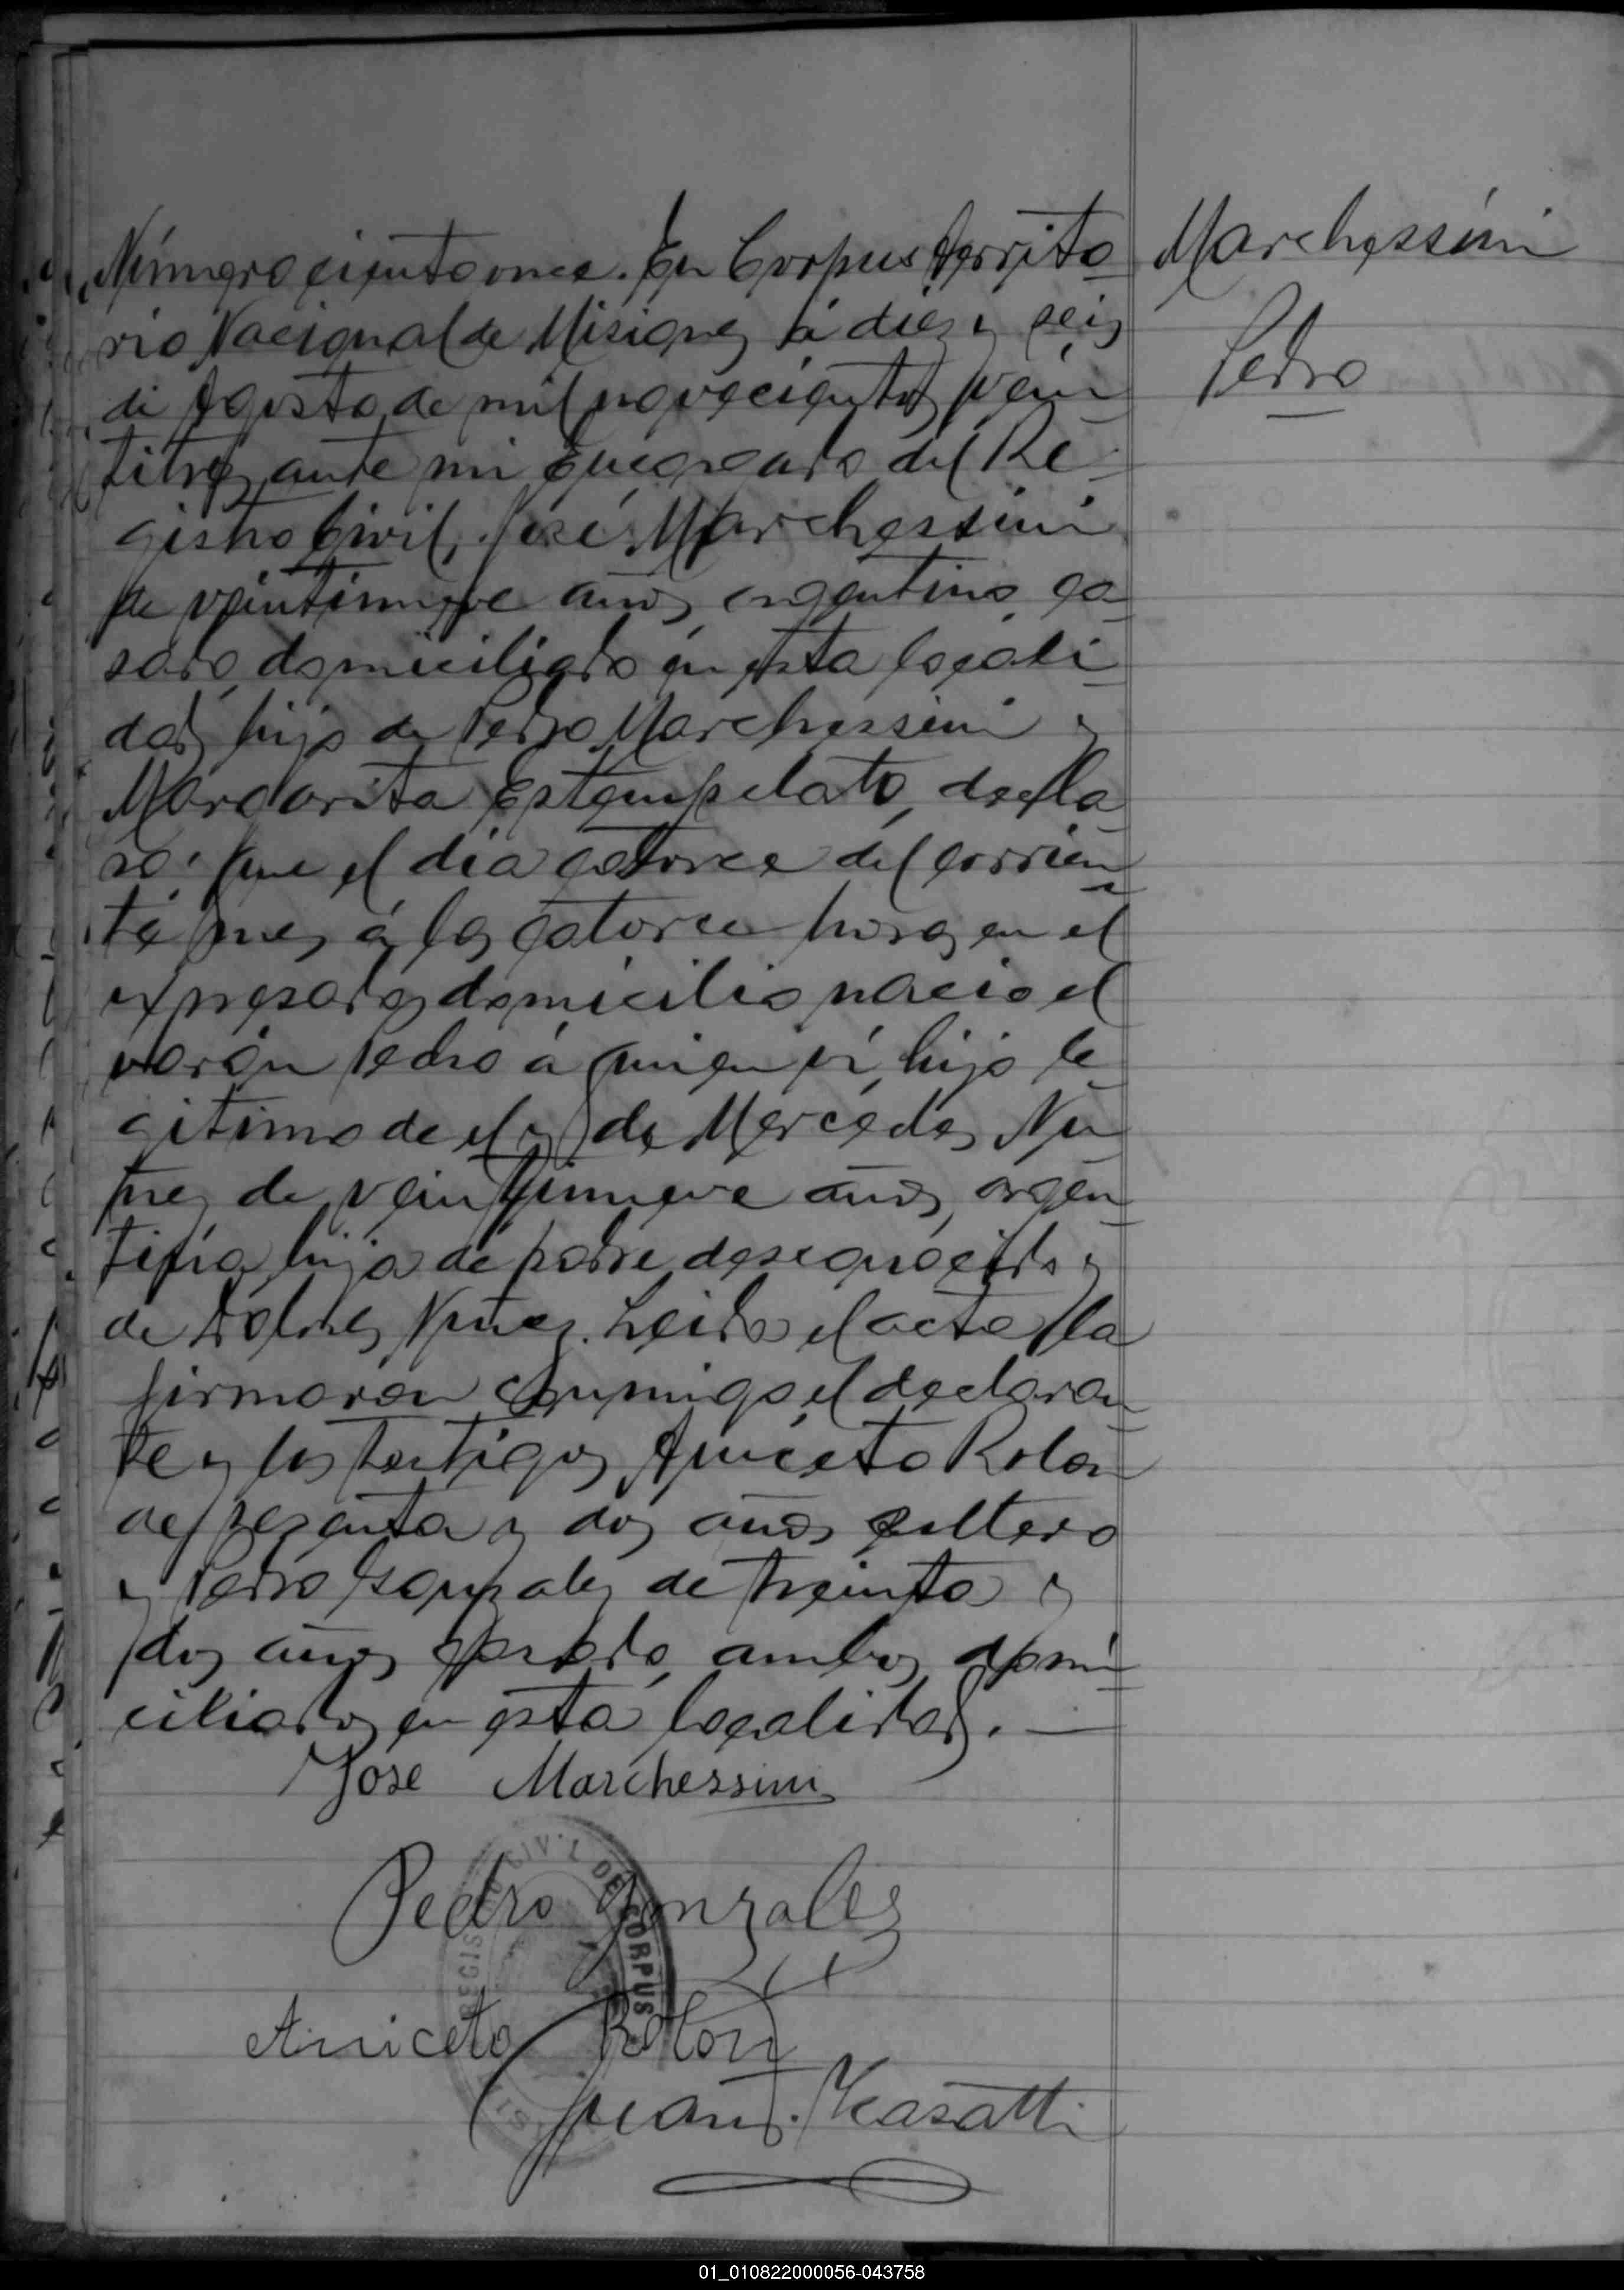 Número ciento once. En Corpus Territo
rio Nacional de Misiones á diez y seis
de Agosto de mil novecientos vein
titres, ante mi Encargado del Re-
gistro Civil, José Marchessini
de veintinueve años, argentino, ca
sado, domiciliado en esta locali
dad, hijo de Pedro Marchessini y
Margarita Estampelato, decla
ró: Que el dia catorce del corrien
te mes á las catorce horas en el
expresado domicilio nació el
varón Pedro á quien vi, hijo le
gitimo de el y de Mercedes Nu
ñes de veintinueve años, argen
tina, hija de padre desconocido y
de Dolores Nuñes. Leida el acta la
firmaron conmigo el declaran
te y los testigos Aniceto Rolon
de sesenta y dos años soltero
y Pedro Gonzales de treinta y
dos años casado, ambos domi
ciliados en esta localidad.
Jose Marchessini
Pedro Gonzales
Aniceto Rolon
Juan Casatti
Marchessini
Pedro
REGISTRO CIVIL DE CORPUS
01_010822000056-043758